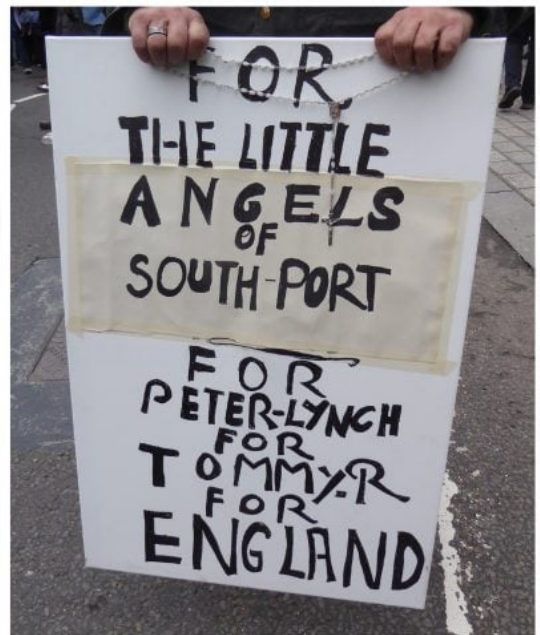 FOR
THE LITTLE
ANGELS
OF
SOUTH-PORT
FOR
PETER-LYNCH
FOR
TOMMY.R
FOR
ENGLAND